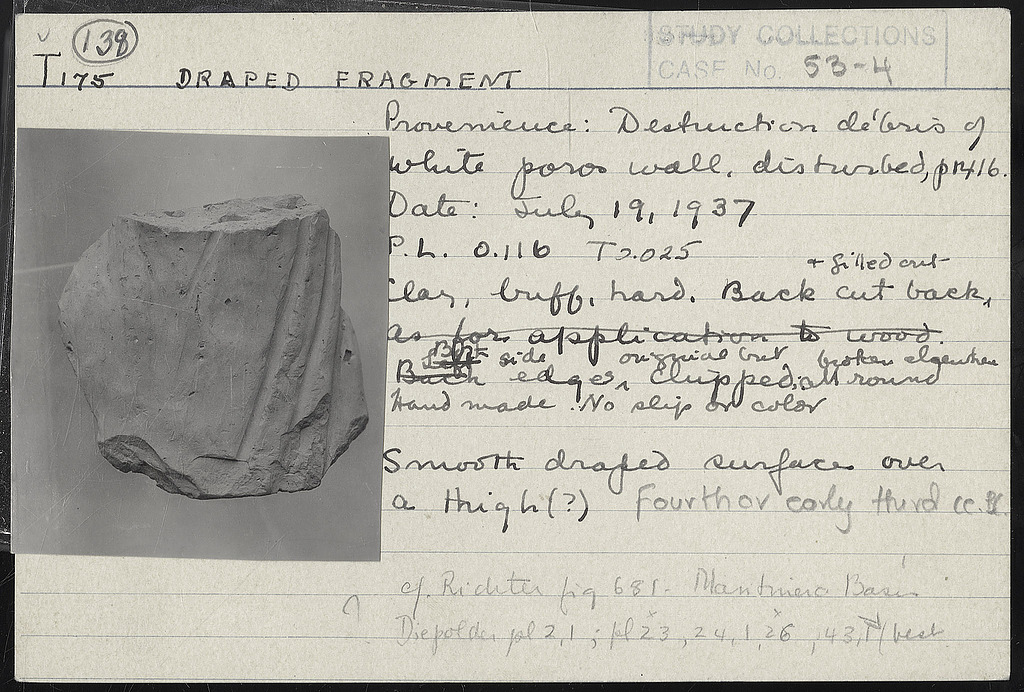 138
STUDY COLLECTIONS
CASE No. 53-4
T175 DRAPED FRAGMENT
Provenience: Destruction débris of
white poros wall, disturbed, p1416.
Date: July 19, 1937
P.L. 0.116 T 0.025
+ filled out
Clay, buff, hard. Back cut back,
as for application to wood.
side original but broken elsewhere
Back edges, chipped all round
Hand made. No slip or color
Smooth draped surface over
a thigh (?) Fourth or early third cc. B.C.
cf. Richter fig 681. Mantinea Basis
Diepolder pl 2,1 ; pl 23, 24,1, 26, 43,1 best